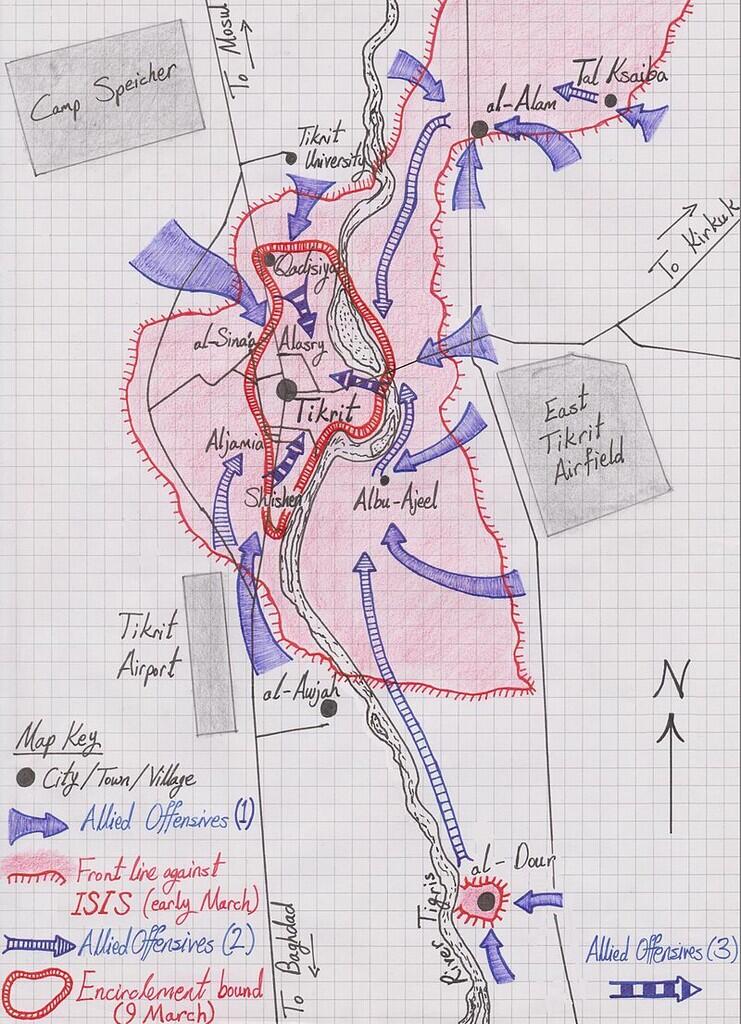 To Mosul
Camp Speicher
Tikrit
University
al-Alam
Tal Ksaiba
To Kirkuk
Qadisiya
al-Sina'a
Alasry
Tikrit
Aljamia
Shishen
Albu-Ajeel
East
Tikrit
Airfield
Tikrit
Airport
al-Awjah
N
al-Dour
River Tigris
To Baghdad
Map Key
City/Town/Village
Allied Offensives (1)
Front line against
ISIS (early March)
Allied Offensives (2)
Encirclement bound
(9 March)
Allied Offensives (3)